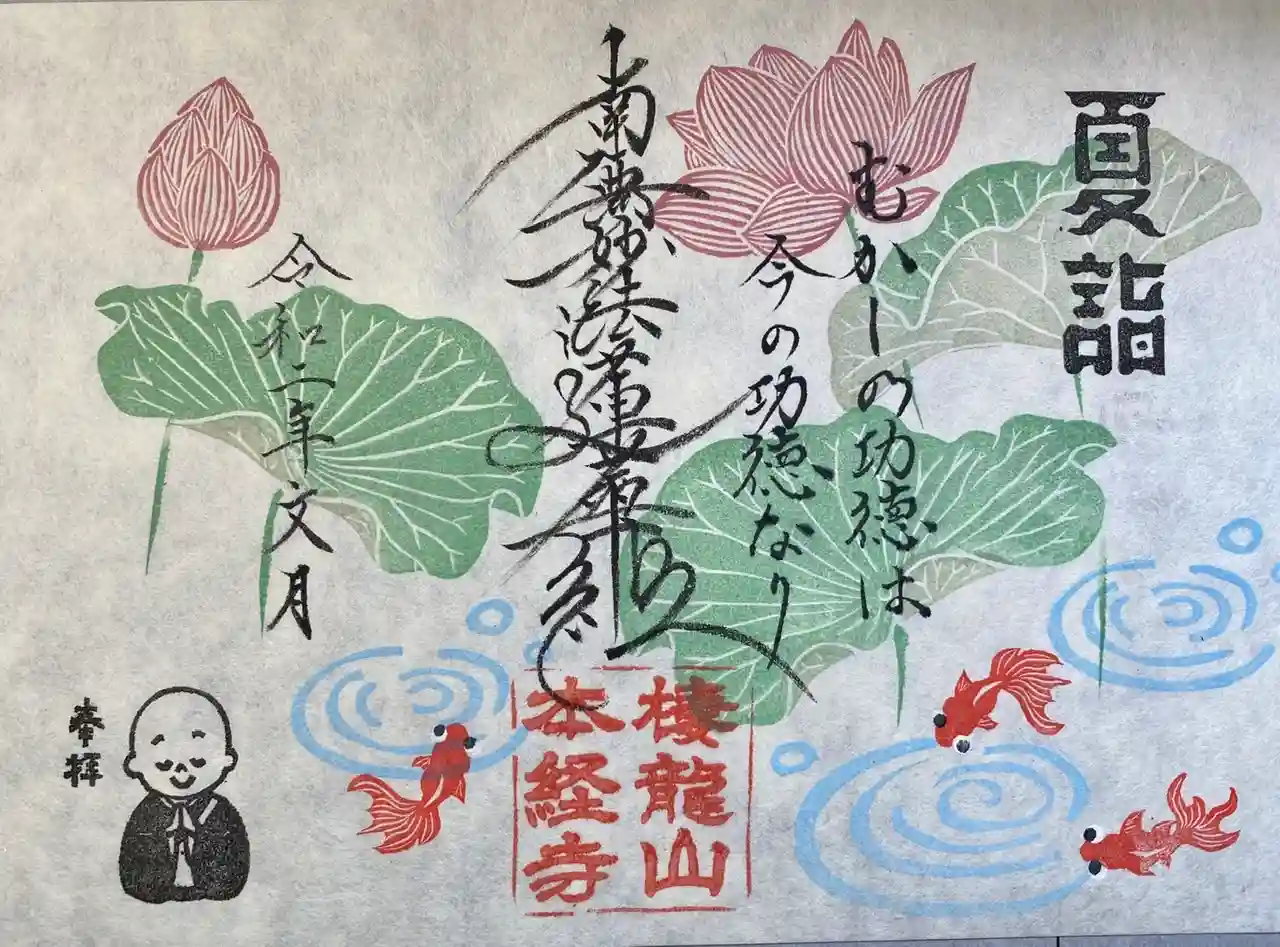 夏詣
むかしの功徳は
今の功徳なり
南無妙法蓮華経
令和二年文月
奉拝
棲龍山
本経寺